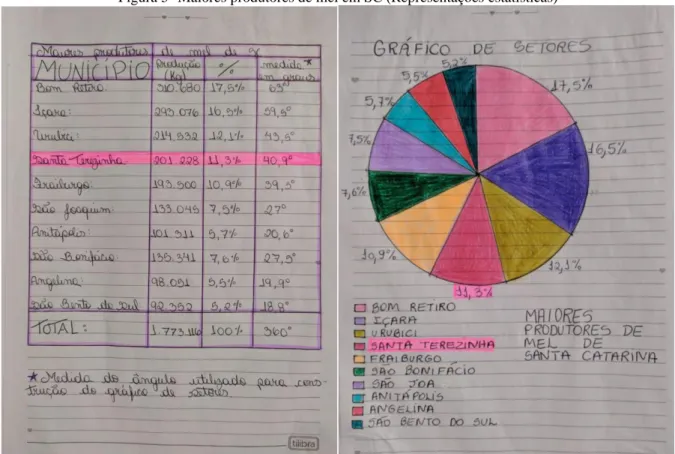 Figura 3- Maiores produtores de mel em SC (Representações estatísticas)
Maiores produtores de mel de SC
MUNICÍPIO Produção (Kg) % medida* em graus
Bom Retiro: 310.680 17,5% 63°
Içara: 293.076 16,5% 59,5°
Urubici: 214.532 12,1% 43,5°
Santa Terezinha 201.228 11,3% 40,9°
Fraiburgo: 193.500 10,9% 39,5°
São Joaquim: 133.045 7,5% 27°
Anitápolis: 101.311 5,7% 20,6°
São Bonifácio: 135.341 7,6% 27,5°
Angelina: 98.051 5,5% 19,9°
São Bento do Sul 92.352 5,2% 18.8°
TOTAL: 1.773.116 100% 360°
* Medida do ângulo utilizado para cons-
trução do gráfico de setores.
tilibra
GRÁFICO DE SETORES
5,2%
5,5%
17,5%
5,7%
7,5%
16,5%
7,6%
10,9%
12,1%
11,3%
BOM RETIRO
IÇARA
URUBICI
SANTA TEREZINHA
FRAIBURGO
SÃO BONIFÁCIO
SÃO JOA
ANITÁPOLIS
ANGELINA
SÃO BENTO DO SUL
MAIORES
PRODUTORES DE
MEL DE
SANTA CATARINA